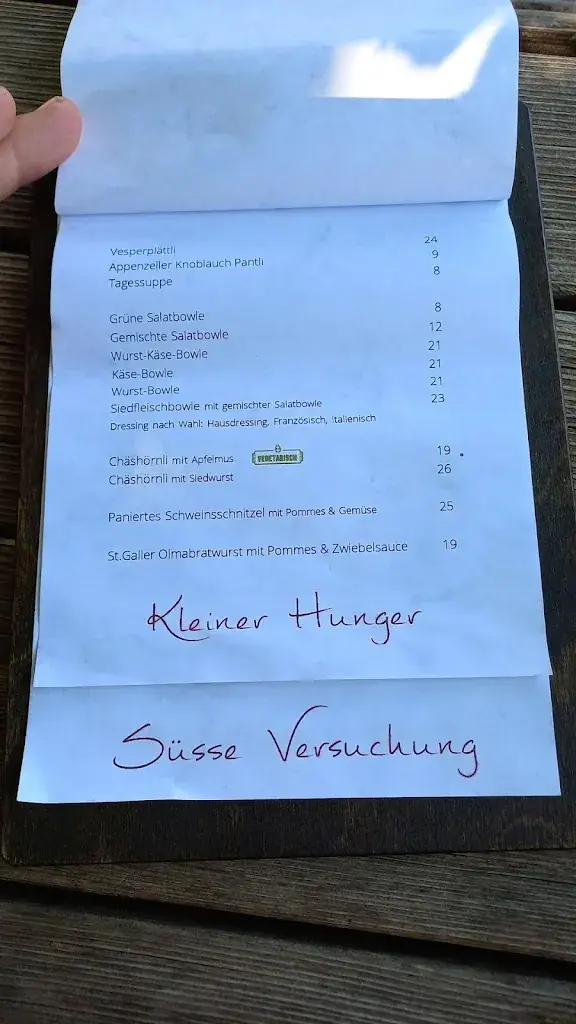 Vesperplättli 24
Appenzeller Knoblauch Pantli 9
Tagessuppe 8
Grüne Salatbowle 8
Gemischte Salatbowle 12
Wurst-Käse-Bowle 21
Käse-Bowle 21
Wurst-Bowle 21
Siedfleischbowle mit gemischter Salatbowle 23
Dressing nach Wahl: Hausdressing, Französisch, Italienisch
Chäshörnli mit Apfelmus VEGETARISCH 19
Chäshörnli mit Siedwurst 26
Paniertes Schweinsschnitzel mit Pommes & Gemüse 25
St.Galler Olmabratwurst mit Pommes & Zwiebelsauce 19
Kleiner Hunger
Süsse Versuchung